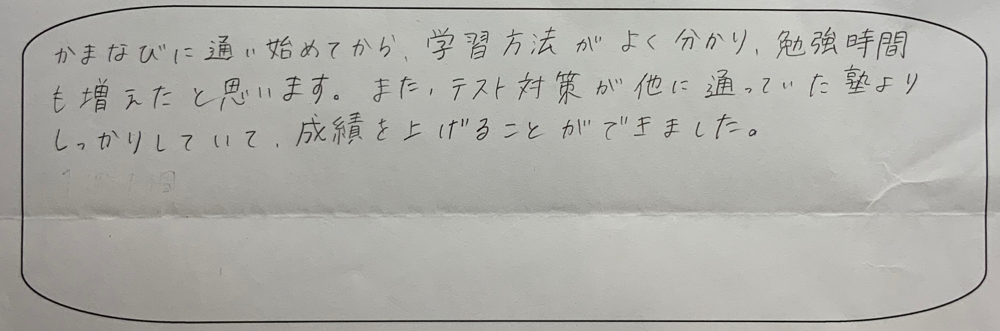 かまなびに通い始めてから、学習方法がよく分かり、勉強時間
も増えたと思います。また、テスト対策が他に通っていた塾より
しっかりしていて、成績を上げることができました。